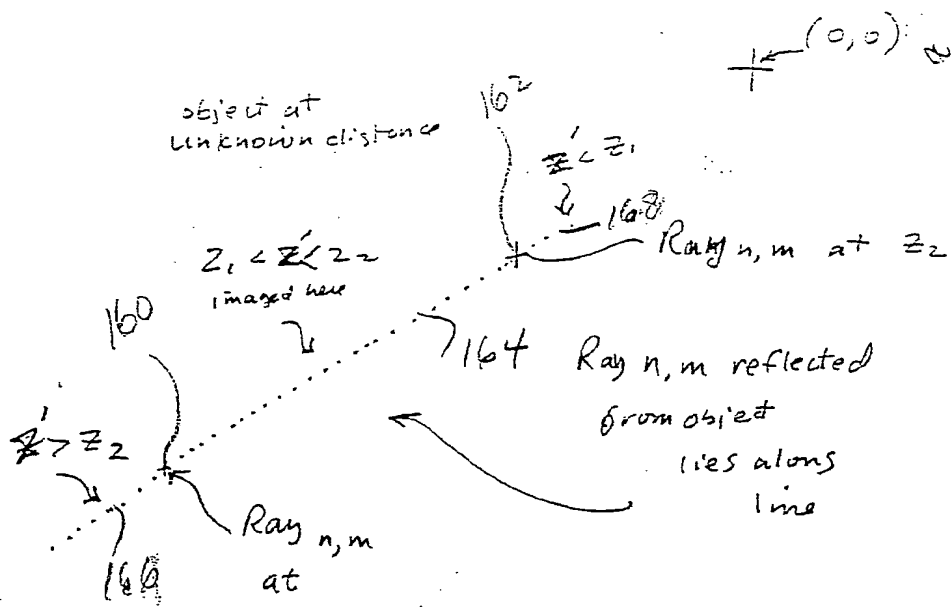 (0,0)
162
object at
unknown distance
z' < z₁
168
Ray n,m at z₂
z₁ < z' < z₂
imaged here
160
164
Ray n,m reflected
from object
lies along
line
z' > z₂
Ray n,m
at
166